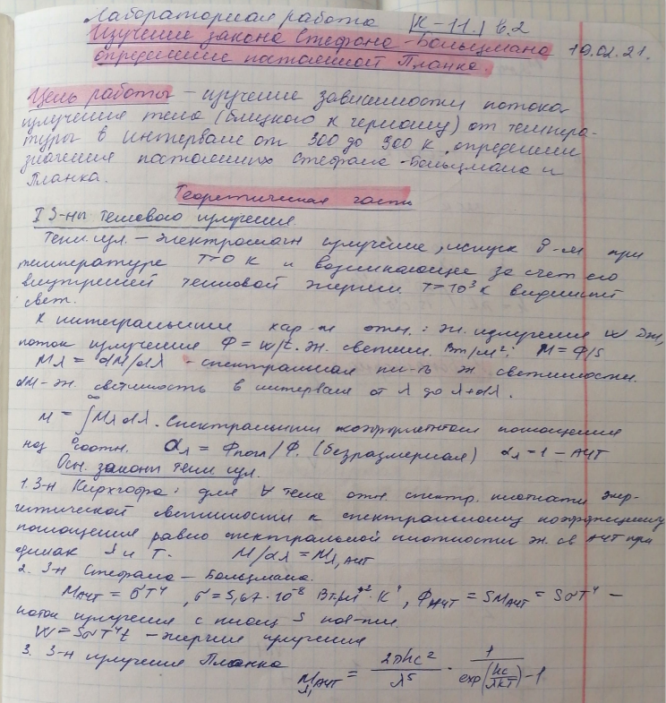 Лабораторная работа К-11.1 в.2
Изучение закона Стефана-Больцмана 19.02.21.
определение постоянной Планка.
Цель работы - изучение зависимости потока
излучения тела (близкого к черному) от темпера-
туры в интервале от 300 до 900 К, определении
значения постоянных Стефана-Больцмана и
Планка.
Теоретическая часть
I З-ны теплового излучения.
Тепл. изл. - электромагн излучение, испуск в-м при
температуре T>0 К и возникающее за счет его
внутренней тепловой энергии T=10³К видимый
свет.
К интегральным хар-м отн.: эн. излучения W Дж,
поток излучения Ф = W/t. эн. светим. Вт/м²; M = Ф/S
Mλ = dM/dλ - спектральная пл-ть эн светимости.
dM - эн. светимость в интервале от λ до λ+dλ.
M = ∫Mλ dλ. Спектральным коэффициентом поглощения
наз соотн. αλ = Фпогл/Ф. (безразмерная) αλ = 1 - АЧТ
Осн. законы тепл изл.
1. З-н Кирхгофа: для ∀ тела отн. спектр. плотности энер-
гетической светимости к спектральному коэффициенту
поглощения равно спектральной плотности эн. св АЧТ при
динак λ и T. M/αλ = Mλ,АЧТ
2. З-н Стефана - Больцмана.
MАЧТ = σT⁴, σ = 5,67·10⁻⁸ Вт·м⁻²·К⁴, ФАЧТ = SMАЧТ = SσT⁴ -
поток излучения с площ S пов-ти.
W = SσT⁴t - энергия излучения
3. З-н излучения Планка Mλ,АЧТ = 2πhc²/λ⁵ · 1/exp(hc/λkT)-1